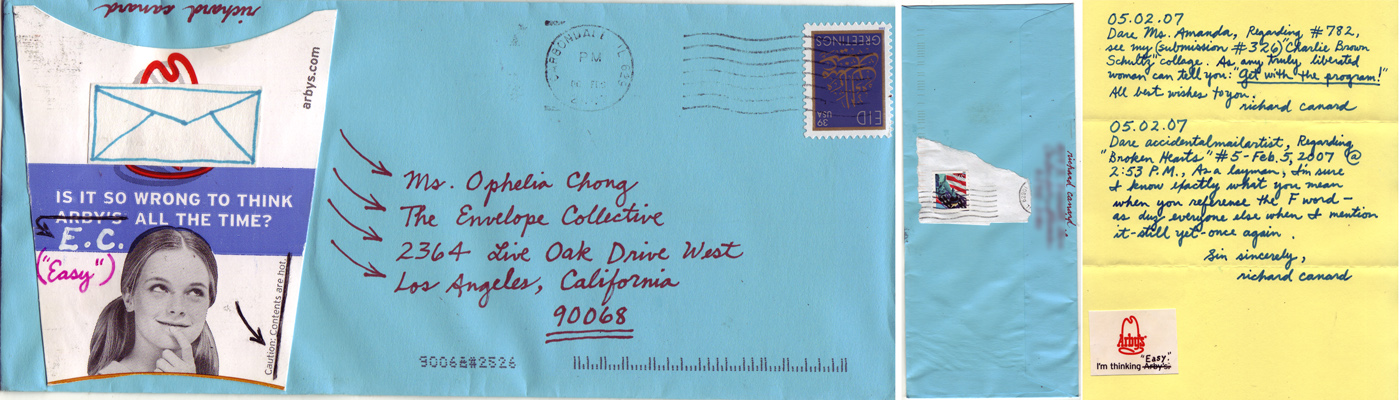 richard canard
arbys.com
IS IT SO WRONG TO THINK
ARBY'S ALL THE TIME?
E.C.
("Easy")
Caution: Contents are hot.
CARBONDALE IL 629
PM
GREETINGS
EID
USA
39
Ms. Ophelia Chong
The Envelope Collective
2364 Live Oak Drive West
Los Angeles, California
90068
90068#2526
richard canard
05.02.07
Dare Ms. Amanda, Regarding #782,
see my (submission #326) "Charlie Brown
Schultz" collage. As any truly liberated
woman can tell you: "Get with the program!"
All best wishes to you.
richard canard
05.02.07
Dare accidentalmailartist, Regarding
"Broken Hearts" #5-Feb. 5, 2007 @
2:53 P.M., As a layman, I'm sure
I know exactly what you mean
when you referense the F word —
as duz everyone else when I mention
it-still yet-once again.
Sin sincerely,
richard canard
Arby's
"Easy."
I'm thinking Arby's.